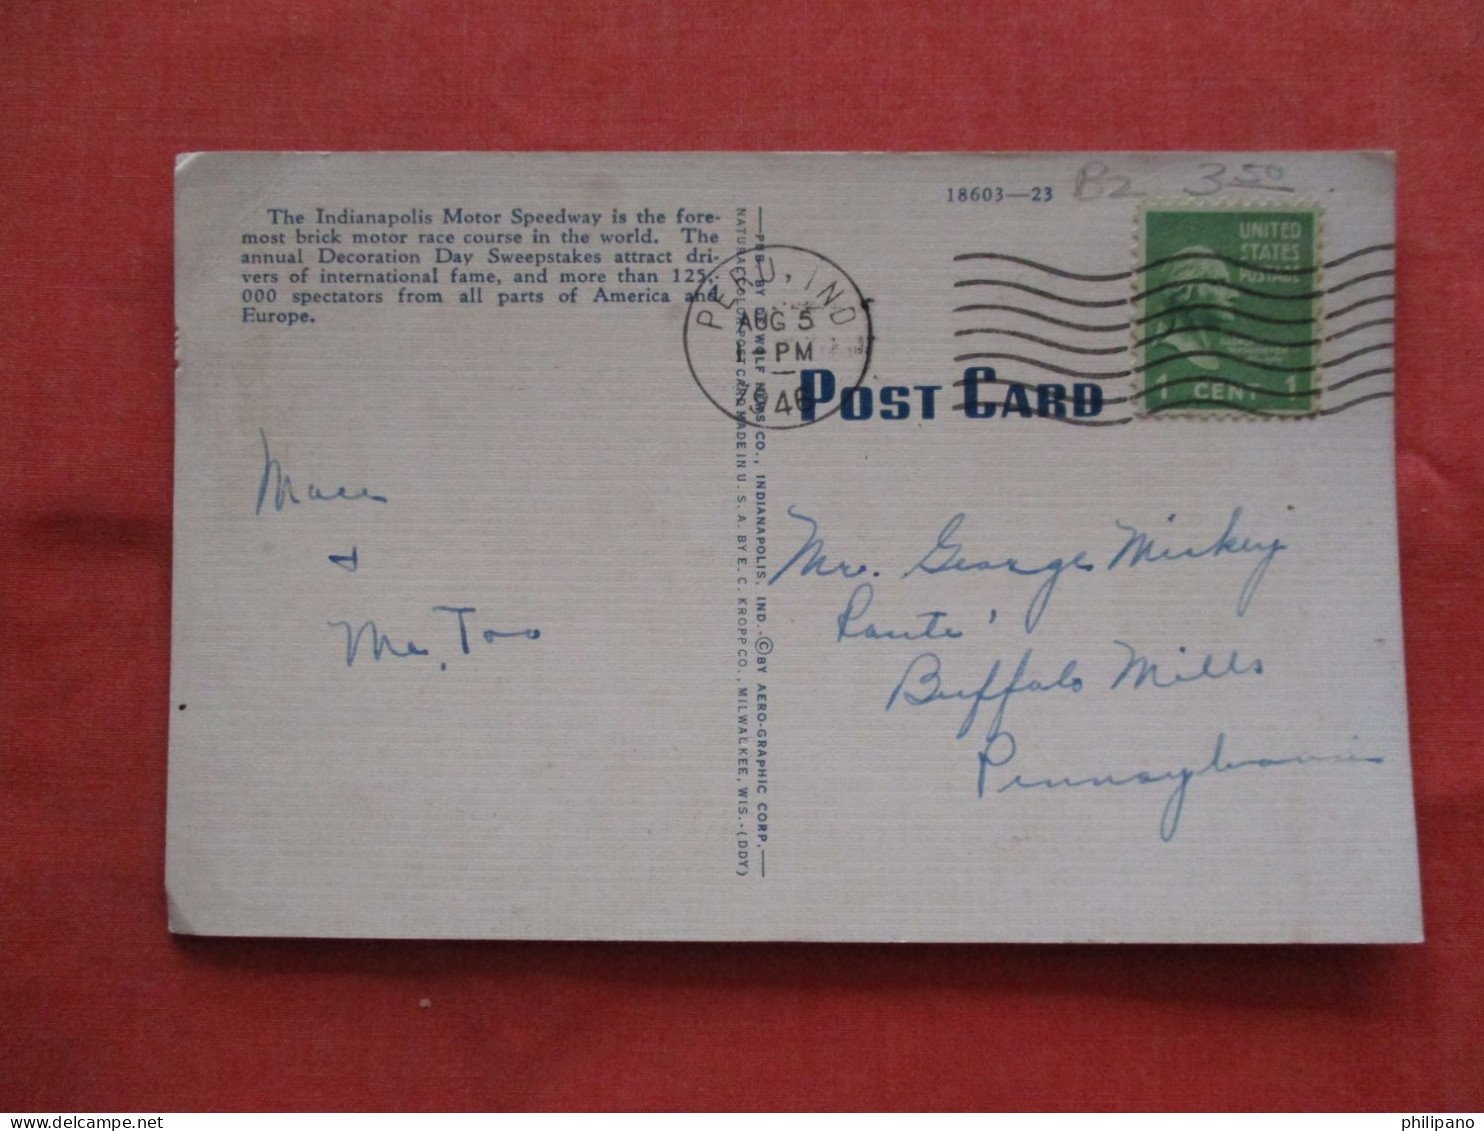 18603—23
B2 3.50
The Indianapolis Motor Speedway is the fore-
most brick motor race course in the world. The
annual Decoration Day Sweepstakes attract dri-
vers of international fame, and more than 125,-
000 spectators from all parts of America and
Europe.
PERU, IND
AUG 5
1 PM
1946
UNITED
STATES
POSTAGE
1 CENT 1
POST CARD
—PUB. BY DE WOLF NEWS CO., INDIANAPOLIS, IND.-© BY AERO-GRAPHIC CORP.—
NATURAL COLOR POST CARD MADE IN U. S. A. BY E. C. KROPP CO., MILWAUKEE, WIS.-(DDY)
&
Me, Too
Mr. George Miskey
Route 1
Buffalo Mills
Pennsylvania
philipano